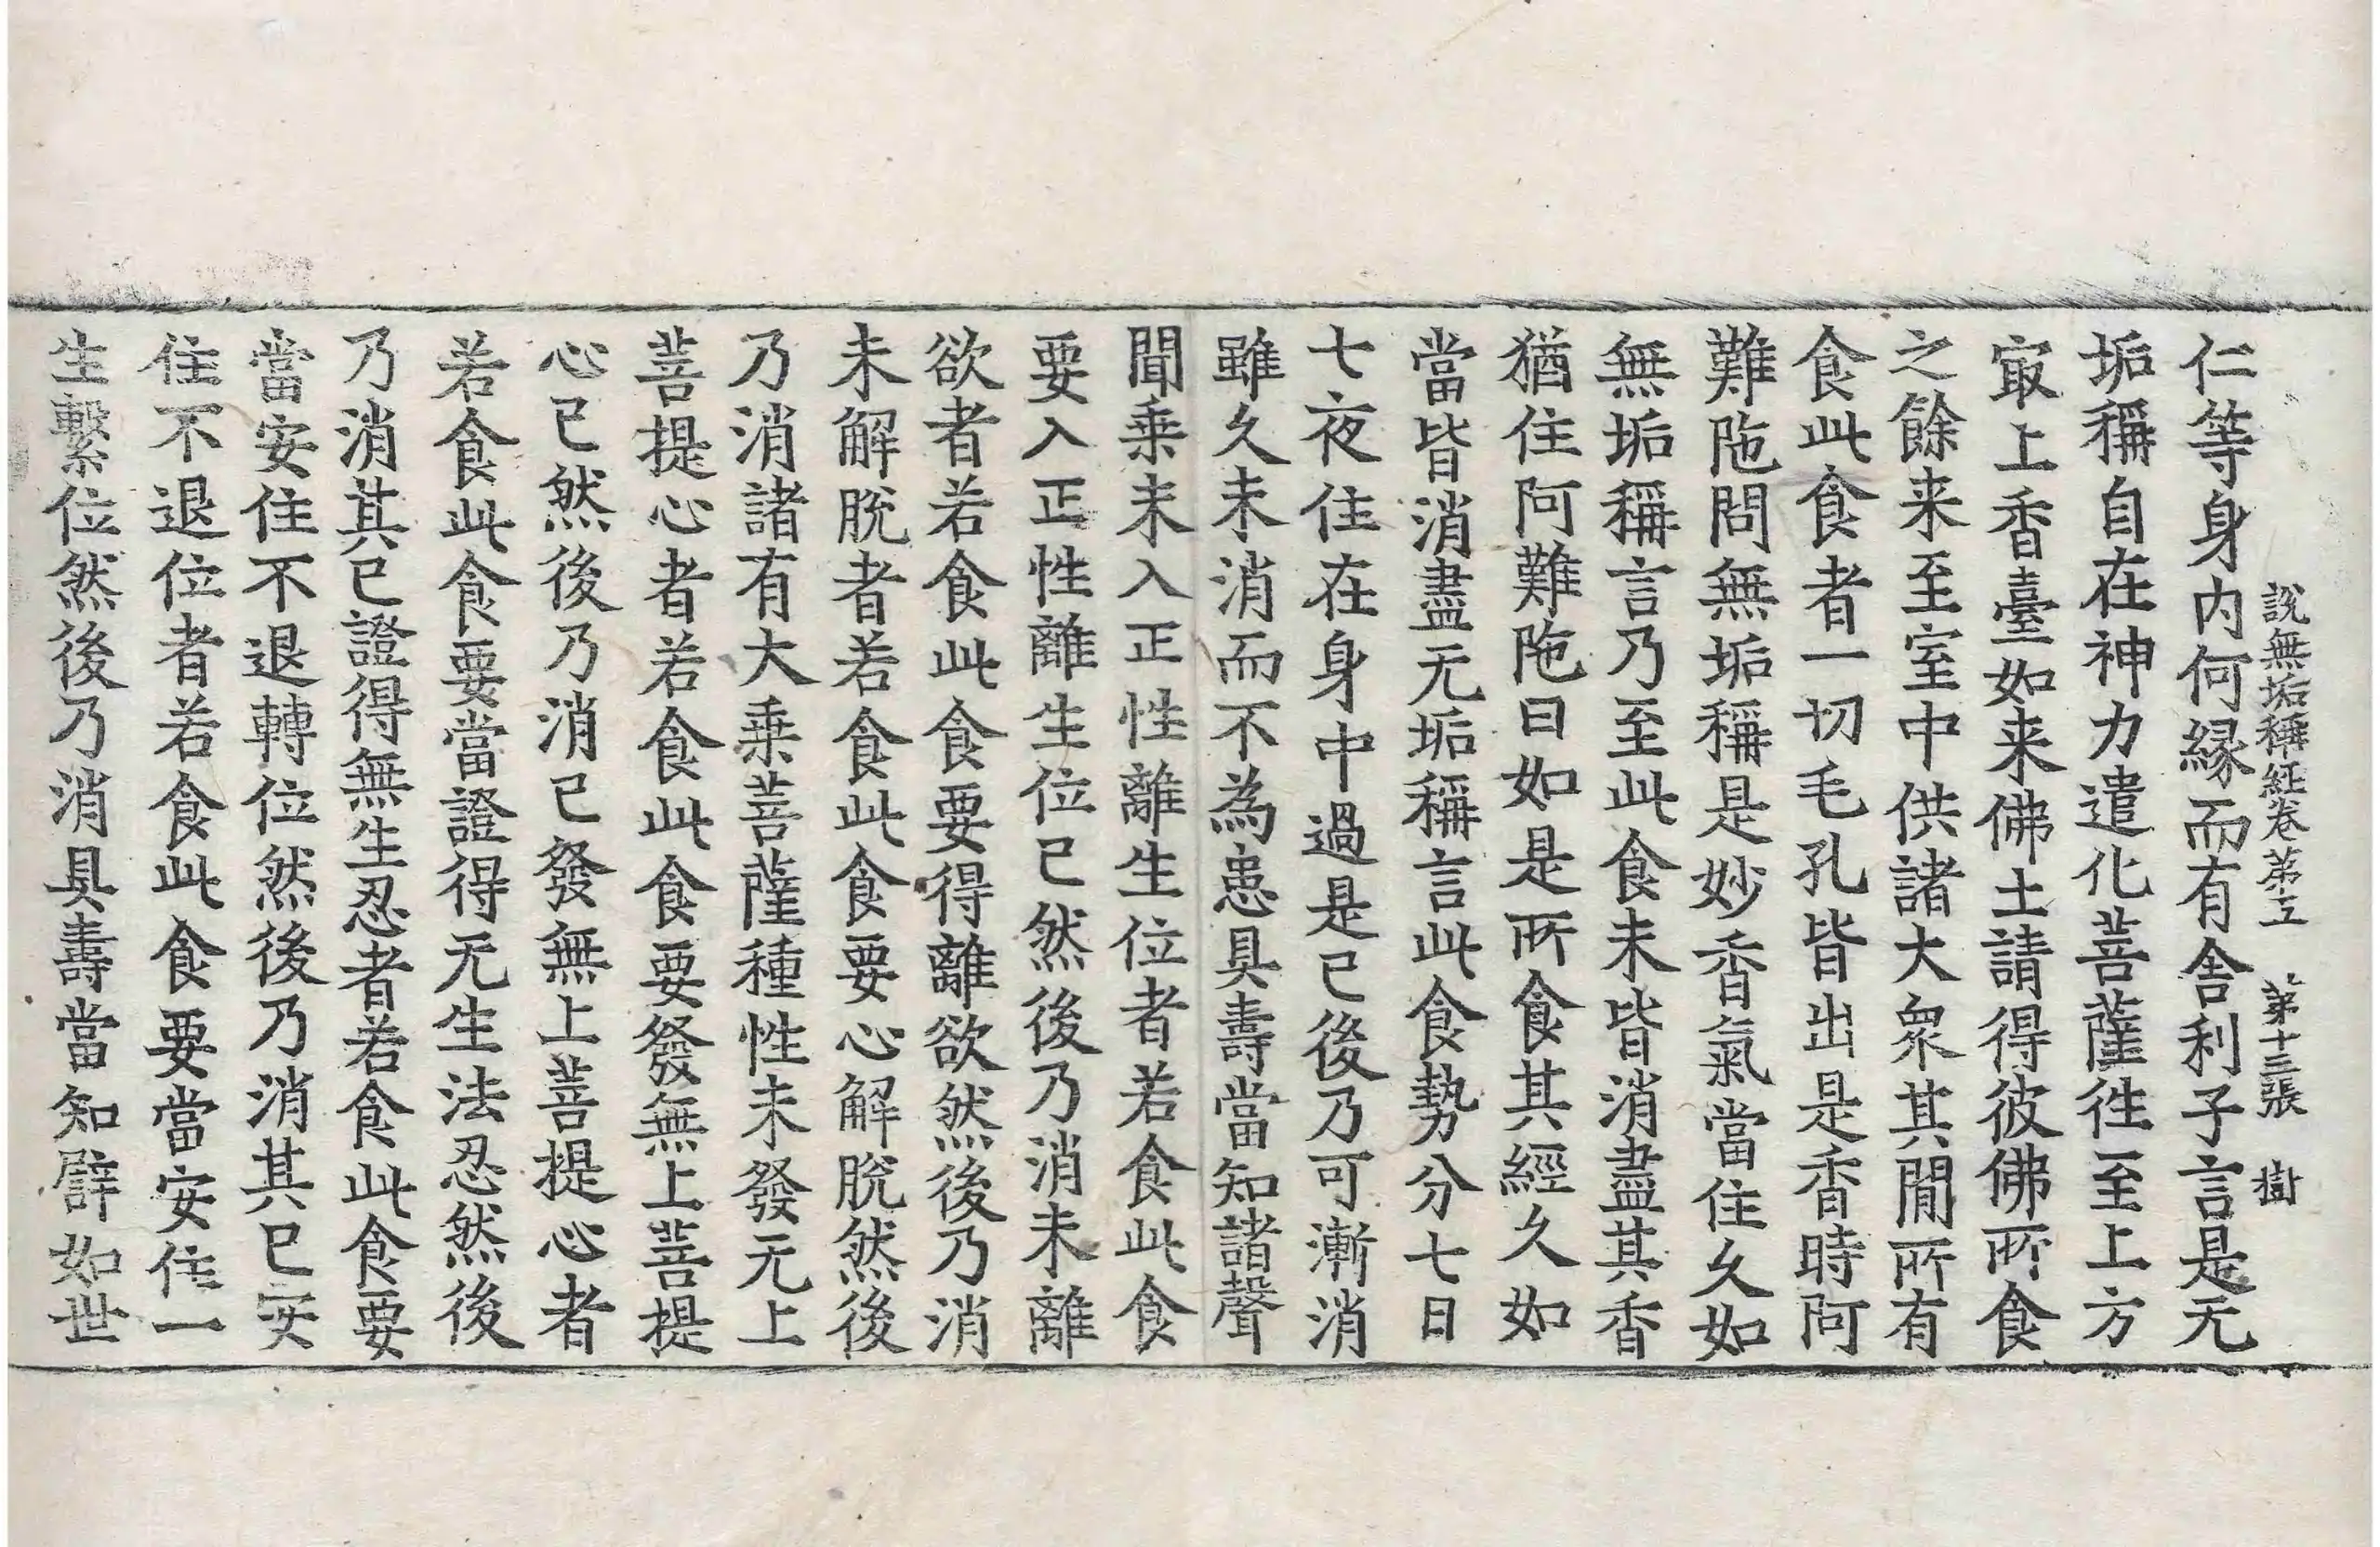 說無垢稱經卷第五 第十三張 樹
仁等身内何縁而有舍利子言是无
垢稱自在神力遣化菩薩徃至上方
㝡上香臺如来佛土請得彼佛所食
之餘来至室中供諸大衆其閒所有
食此食者一切毛孔皆出是香時阿
難陁問無垢稱是妙香氣當住久如
無垢稱言乃至此食未皆消盡其香
猶住阿難陁曰如是所食其經久如
當皆消盡无垢稱言此食勢分七日
七夜住在身中過是已後乃可漸消
雖久未消而不為患具壽當知諸聲
聞乗未入正性離生位者若食此食
要入正性離生位已然後乃消未離
欲者若食此食要得離欲然後乃消
未解脫者若食此食要心解脫然後
乃消諸有大乗菩薩種性未發无上
菩提心者若食此食要發無上菩提
心已然後乃消已發無上菩提心者
若食此食要當證得无生法忍然後
乃消其已證得無生忍者若食此食要
當安住不退轉位然後乃消其已安
住不退位者若食此食要當安住一
生繫位然後乃消具壽當知譬如世